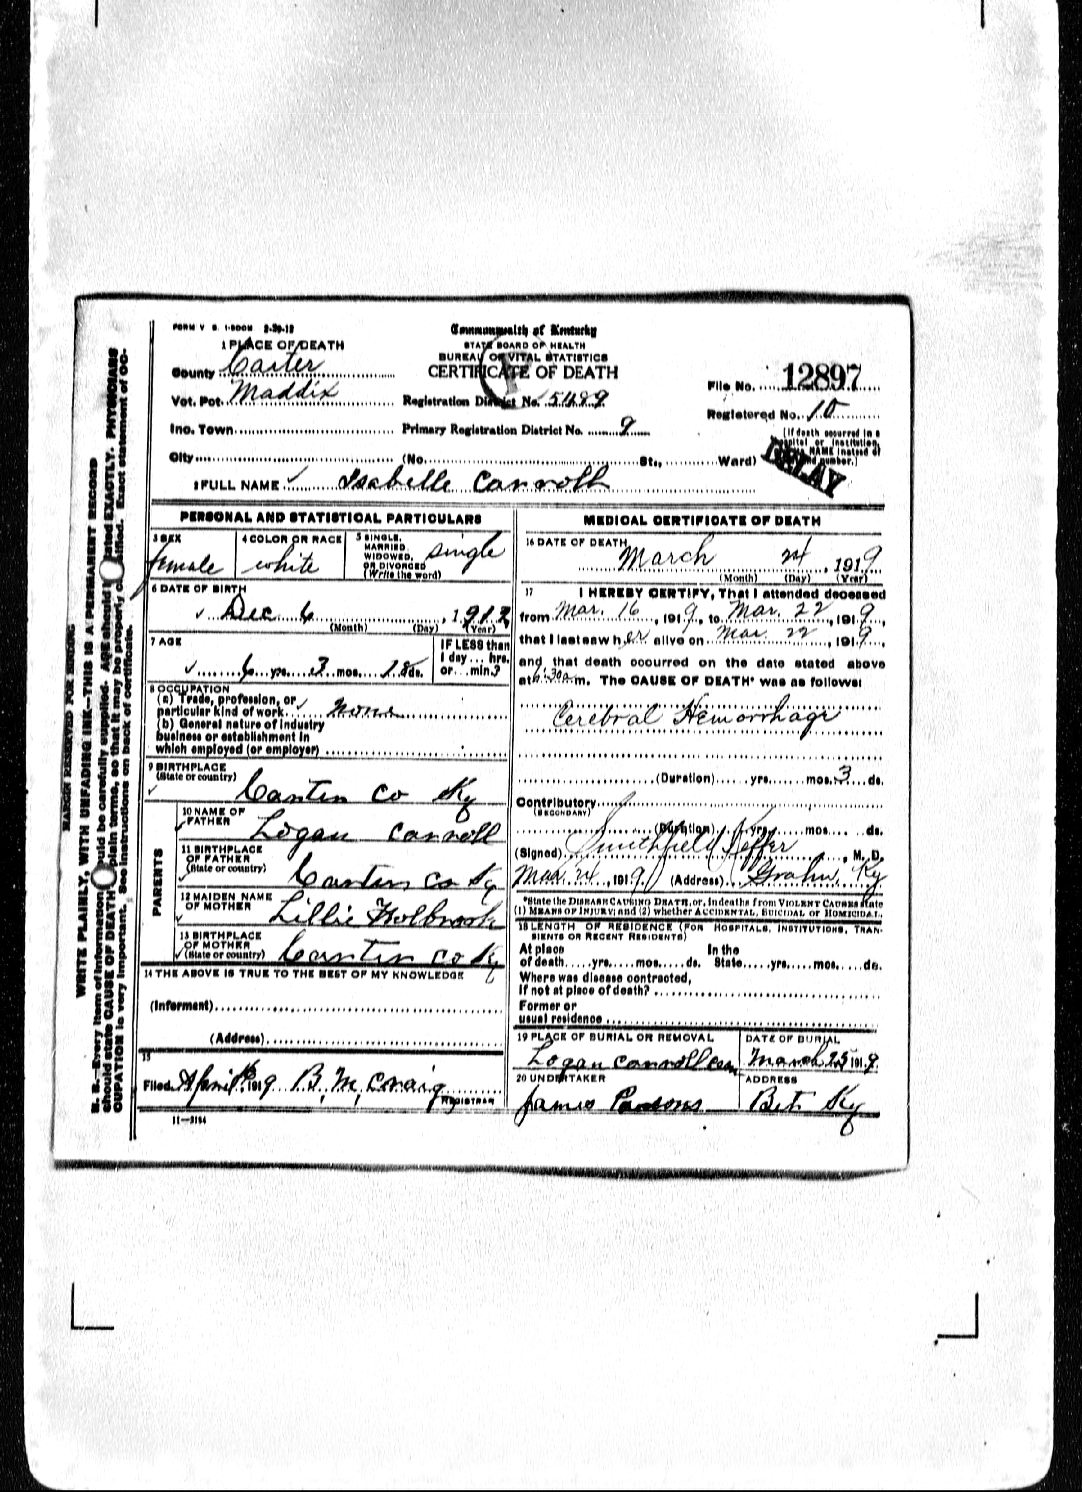 FORM V. S. 1-500M 2-20-12
Commonwealth of Kentucky
STATE BOARD OF HEALTH
BUREAU OF VITAL STATISTICS
CERTIFICATE OF DEATH
1 PLACE OF DEATH
County Carter
Vot. Pct. Maddix
Inc. Town
City (No. St., Ward)
Registration District No. 5489
Primary Registration District No. 9
File No. 12897
Registered No. 10
(If death occurred in a
hospital or institution,
NAME instead of
and number.)
DELAY
2 FULL NAME Isabelle Carroll
PERSONAL AND STATISTICAL PARTICULARS
3 SEX female
4 COLOR OR RACE white
5 SINGLE, MARRIED, WIDOWED, OR DIVORCED (Write the word) single
6 DATE OF BIRTH
Dec 6, 1912
(Month) (Day) (Year)
7 AGE
6 yrs. 3 mos. 18 ds.
IF LESS than
1 day... hrs.
or... min.?
8 OCCUPATION
(a) Trade, profession, or
particular kind of work none
(b) General nature of industry
business or establishment in
which employed (or employer)
9 BIRTHPLACE
(State or country)
Carter Co Ky
PARENTS
10 NAME OF FATHER Logan Carroll
11 BIRTHPLACE OF FATHER (State or country) Carter Co Ky
12 MAIDEN NAME OF MOTHER Lillie Holbrook
13 BIRTHPLACE OF MOTHER (State or country) Carter Co Ky
14 THE ABOVE IS TRUE TO THE BEST OF MY KNOWLEDGE
(Informant)
(Address)
15
Filed April 1919 B. M. Craig
REGISTRAR
11-3184
MEDICAL CERTIFICATE OF DEATH
16 DATE OF DEATH
March 24, 1919
(Month) (Day) (Year)
17 I HEREBY CERTIFY, That I attended deceased
from Mar. 16, 1919, to Mar. 22, 1919,
that I last saw her alive on Mar. 22, 1919,
and that death occurred on the date stated above
at 6:30 a m. The CAUSE OF DEATH* was as follows:
Cerebral Hemorrhage
(Duration) yrs. mos. 3 ds.
Contributory
(SECONDARY)
(Duration) yrs. mos. ds.
(Signed) Smithfield Keffer, M. D.
Mar. 24, 1919 (Address) Grahn, Ky
*State the DISEASE CAUSING DEATH, or, in deaths from VIOLENT CAUSES state
(1) MEANS OF INJURY; and (2) whether ACCIDENTAL, SUICIDAL or HOMICIDAL.
18 LENGTH OF RESIDENCE (FOR HOSPITALS, INSTITUTIONS, TRAN-
SIENTS OR RECENT RESIDENTS)
At place In the
of death yrs. mos. ds. State yrs. mos. ds.
Where was disease contracted,
if not at place of death?
Former or
usual residence
19 PLACE OF BURIAL OR REMOVAL
Logan Carroll cem
DATE OF BURIAL
March 25 1919
20 UNDERTAKER
James Parsons
ADDRESS
Bet Ky
MARGIN RESERVED FOR BINDING
WRITE PLAINLY, WITH UNFADING INK—THIS IS A PERMANENT RECORD
N. B.—Every item of information should be carefully supplied. AGE should be stated EXACTLY. PHYSICIANS
should state CAUSE OF DEATH in plain terms, so that it may be properly classified. Exact statement of OC-
CUPATION is very important. See instructions on back of certificate.